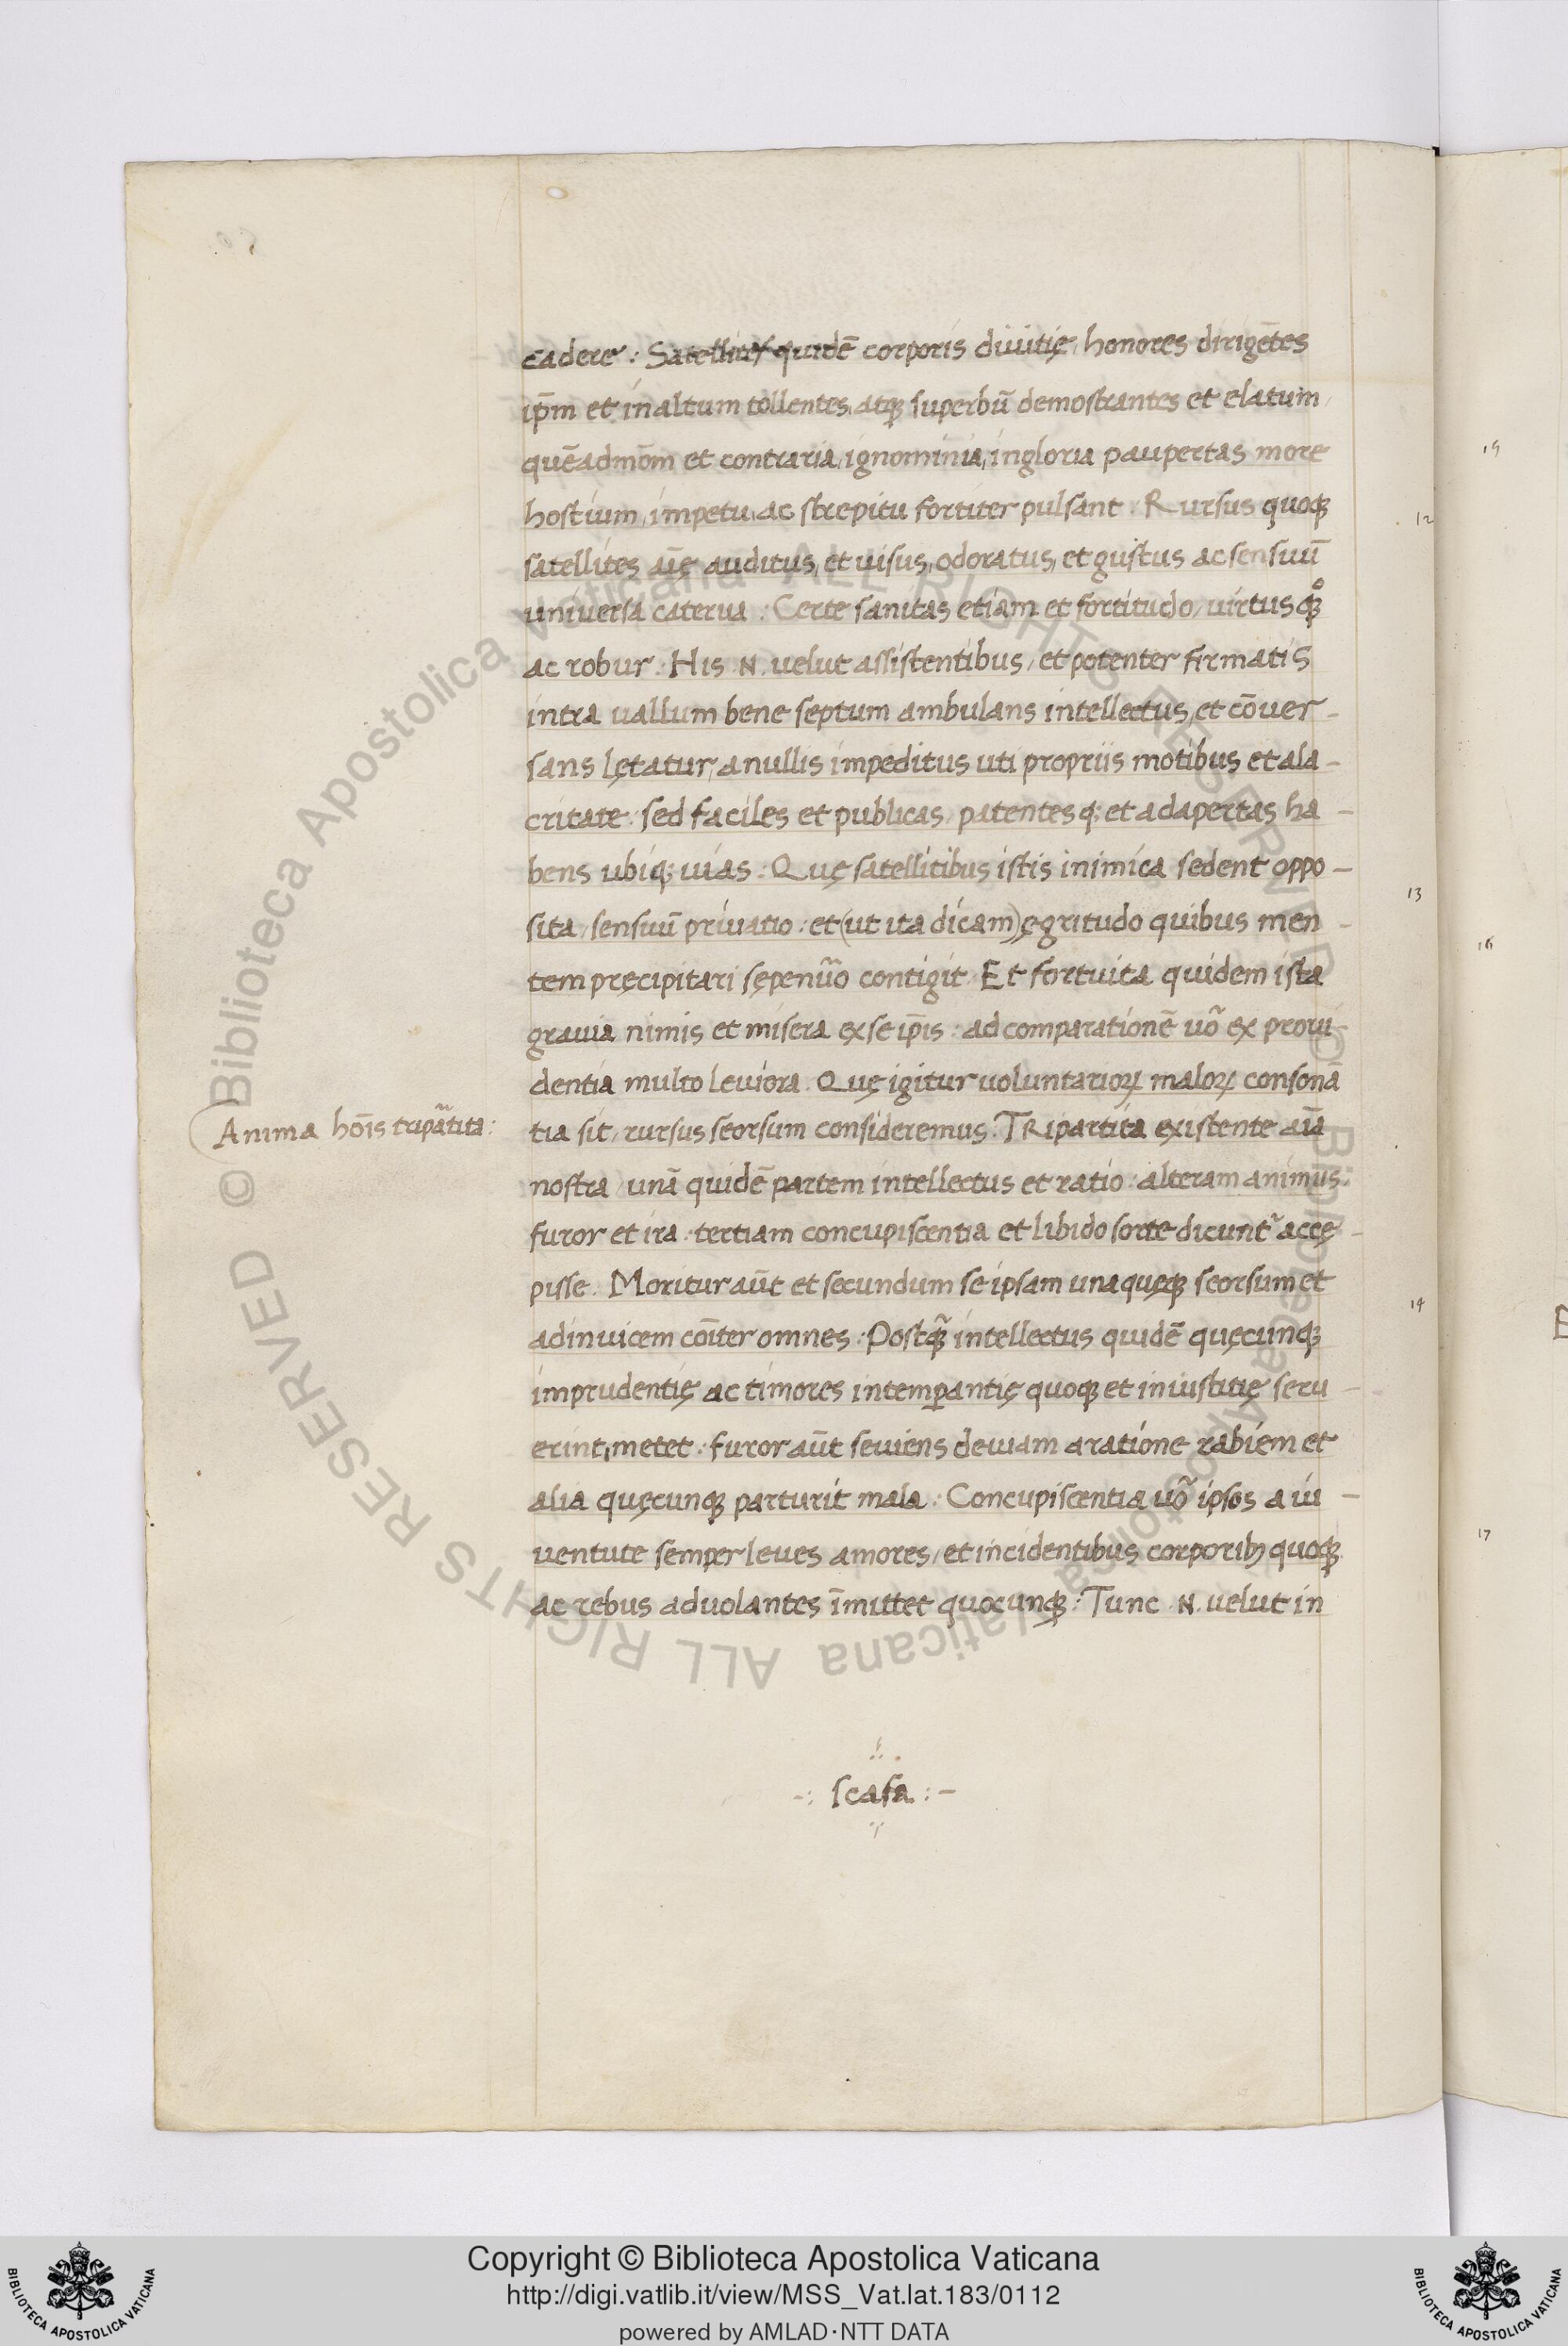 cadere : Satellites quidē corporis diuitię, honores dirigētes
ip̄m et in altum tollentes, atq; superbū demostrantes et elatum,
quēadmōm et contraria, ignominia, ingloria paupertas more
hostium, impetu, ac strepitu fortiter pulsant. Rursus quoq;
satellites aīę auditus, et uisus, odoratus, et gustus ac sensuū
universa caterua : Certe sanitas etiam et fortitudo, uirtusq;
ac robur : His .N. velut assistentibus, et potenter firmatis
intra uallum bene septum ambulans intellectus, et cōuer-
sans lętatur, a nullis impeditus uti propriis motibus et ala-
critate : sed faciles et publicas, patentesq; et adapertas ha-
bens ubiq; uias : Quę satellitibus istis inimica sedent oppo-
sita, sensuū priuatio : et (ut ita dicam) ęgritudo quibus men-
tem pręcipitari sępenūo contigit. Et fortuita quidem ista
grauia nimis et misera ex se ip̄is : ad comparationē uō ex prou-
dentia multo leuiora. Quę igitur voluntarioꝝ maloꝝ consonā
tia sit, rursus seorsum consideremus : TRipartita existente aīa
Anima hōis tripātita :
nostra, unā quidē partem intellectus et ratio : alteram animus :
furor et ira : tertiam concupiscentia et libido sorte dicunt᷑ accę-
pisse. Moritur aūt et secundum se ipsam unaquęq; seorsum et
adinuicem cōiter omnes : Postq̄; intellectus quidē quęcunq;
imprudentię ac timores intemꝑantię quoq; et iniustitię seru-
erint, metet : furor aūt seuiens deuiam a ratione rabiem et
alia quęcunq; parturit mala : Concupiscentia uō ipsos a iu-
uentute semper leues amores, et incidentibus corporib; quoq;
ac rebus aduolantes īmittet quocunq; : Tunc .N. velut in
-: scafa : -
12
13
14
15
16
17
© Biblioteca Apostolica Vaticana ALL RIGHTS RESERVED
© Biblioteca Apostolica Vaticana ALL RIGHTS RESERVED
Copyright © Biblioteca Apostolica Vaticana
http://digi.vatlib.it/view/MSS_Vat.lat.183/0112
powered by AMLAD·NTT DATA
BIBLIOTECA APOSTOLICA VATICANA
BIBLIOTECA APOSTOLICA VATICANA